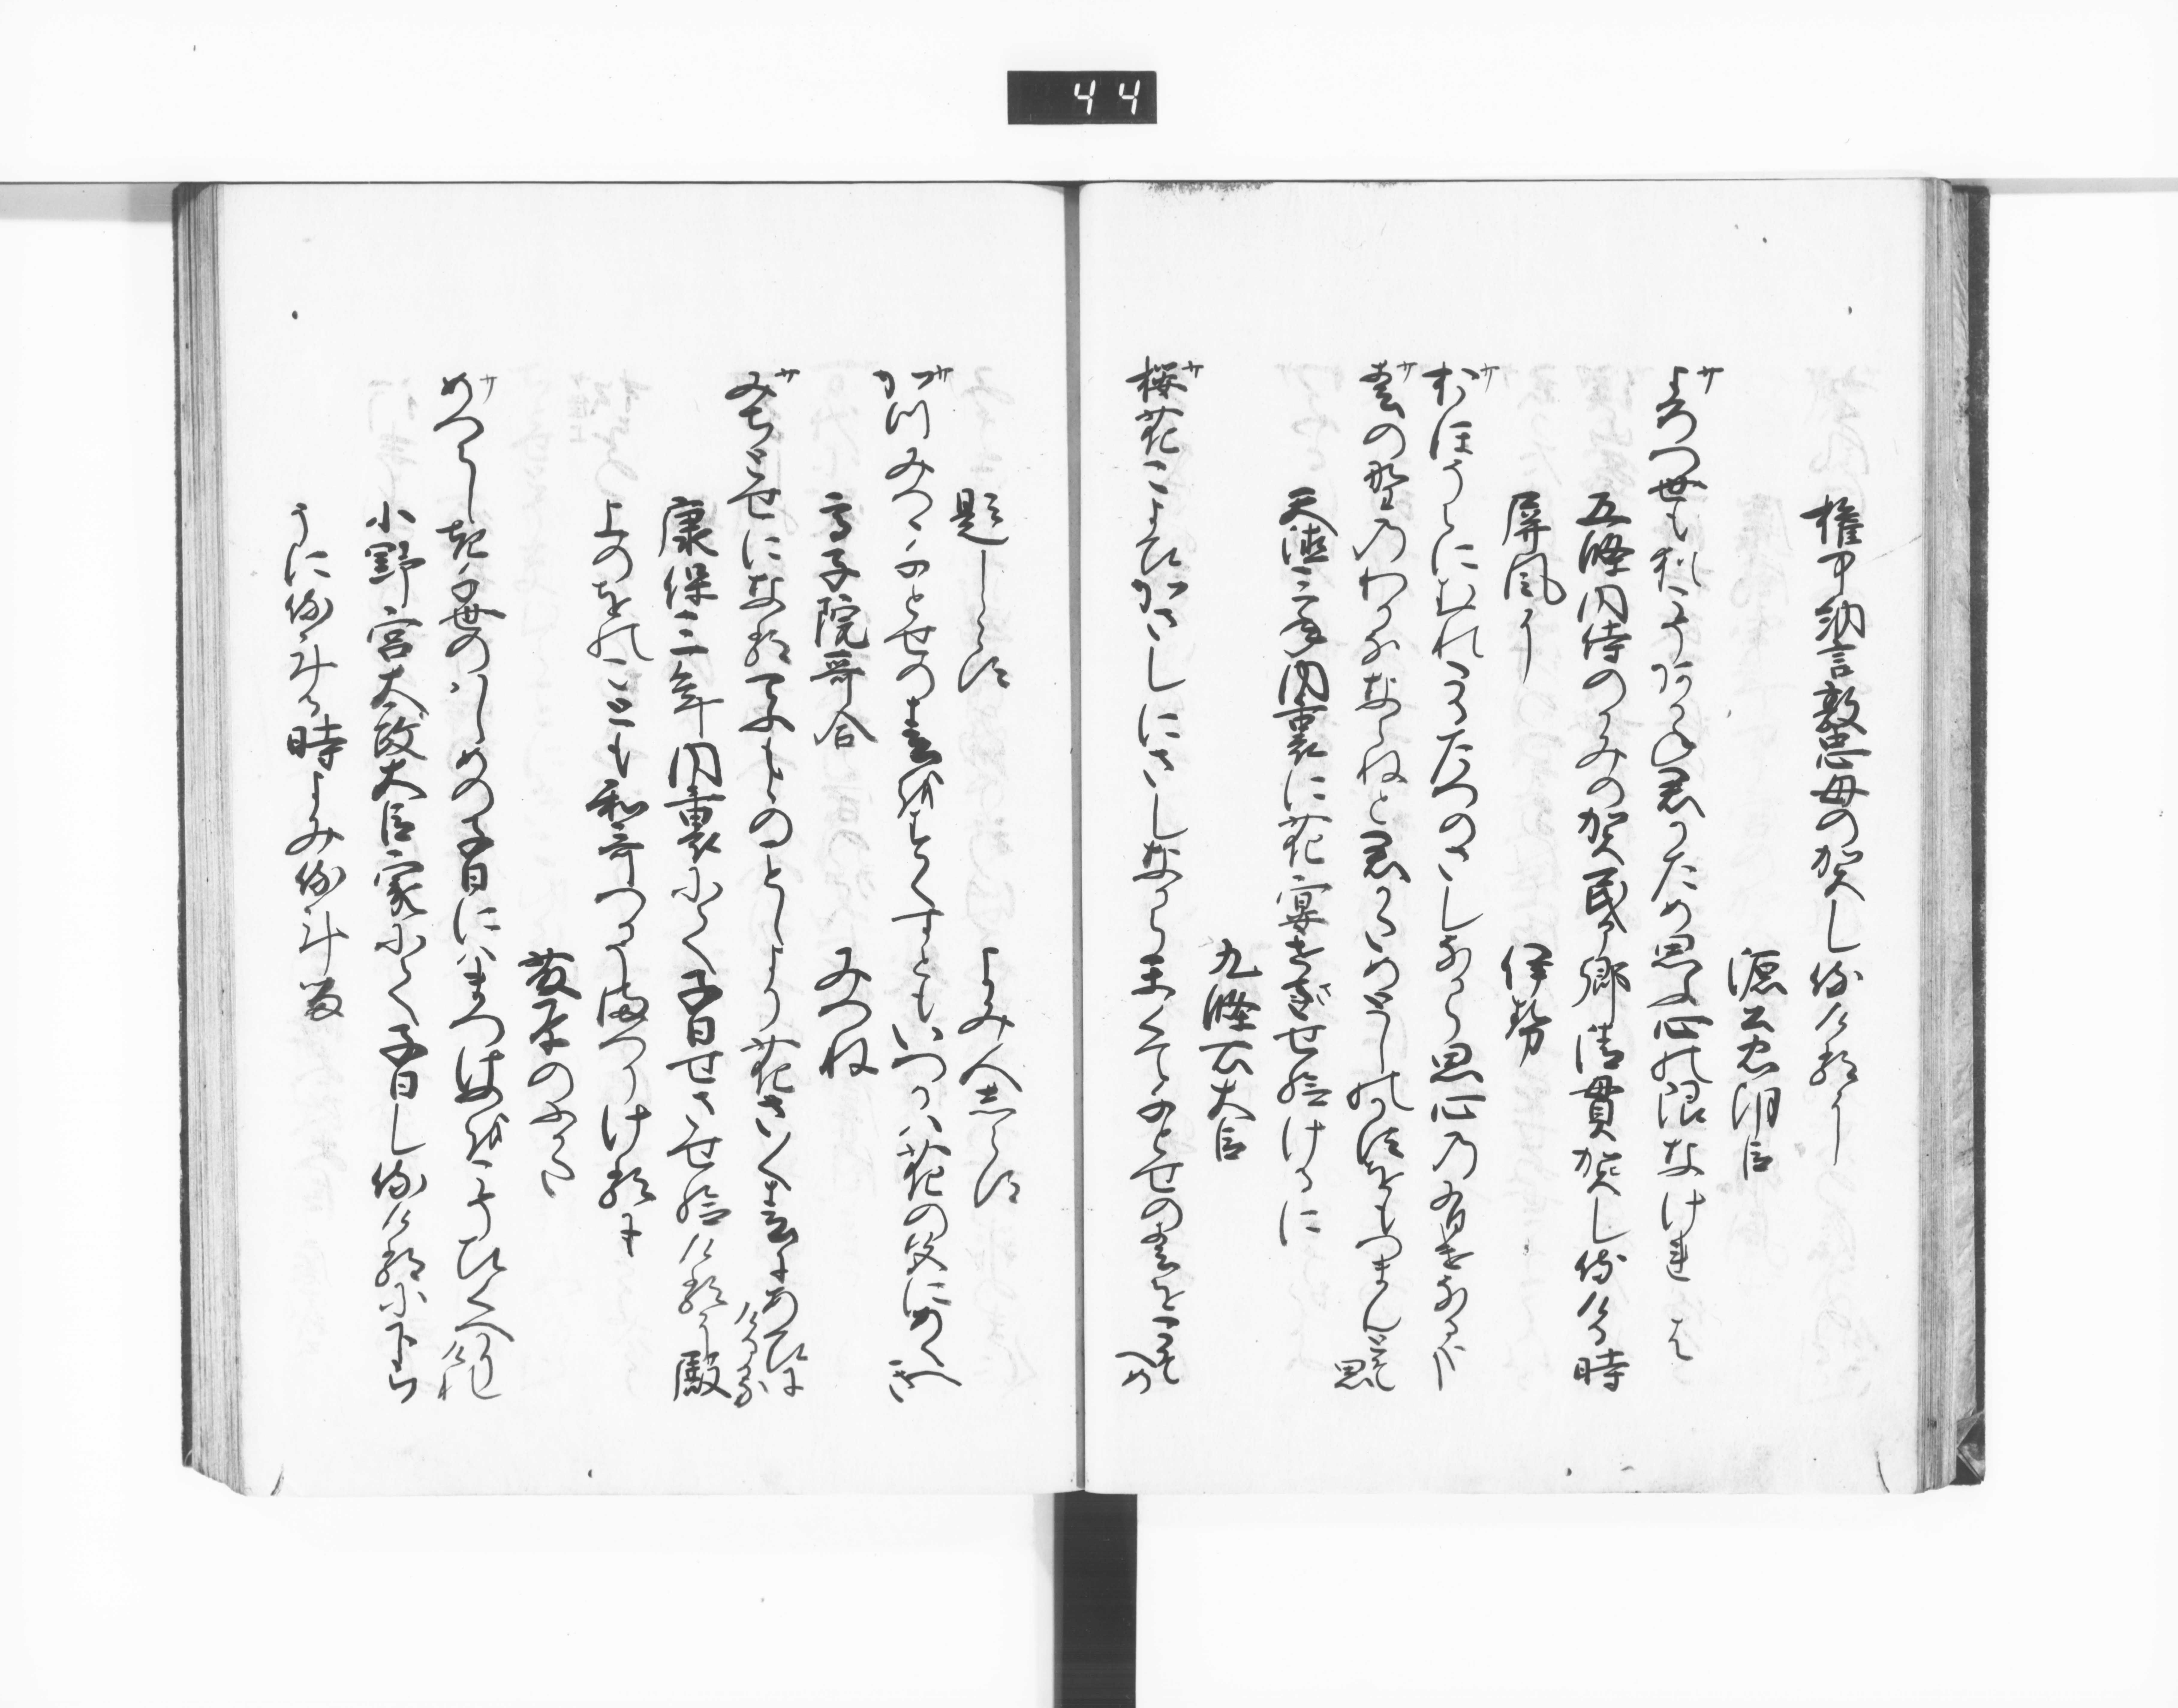 44
権中納言敦忠母の賀し侍けるに
源公忠朝臣
サ よろつ世も猶こそあかね君かため思ふ心の限なけれは
五條内侍のかみの賀民部卿清貫賀し侍ける時
屏風に　伊勢
サ おほそらにむれゐるたつのさしなから思心の有けなるかな
サ 春の野のわかなならねと君かため年の数をもつまんとそ思
天徳三年内裏に花宴せさせ給けるに
九條右大臣
サ 桜花こよひかさしにさしなからかくて千とせの春をこそへめ
題しらす　よみ人しらす
サ かつみつゝ千とせの春をすくすともいつかは花の色にあくへき
亭子院哥合　みつね
サ みちとせになるてふもゝのことしより花さく春にあひにけるかな
康保三年内裏にて子日せさせ給けるに殿
上のをのことも和哥つかうまつりけるに
藤原のふかた
サ めつらしき千世のはしめの子日にはまつけふをこそひくへかりけれ
小野宮太政大臣家にて子日し侍けるに下ら
うに侍ける時よみ侍ける